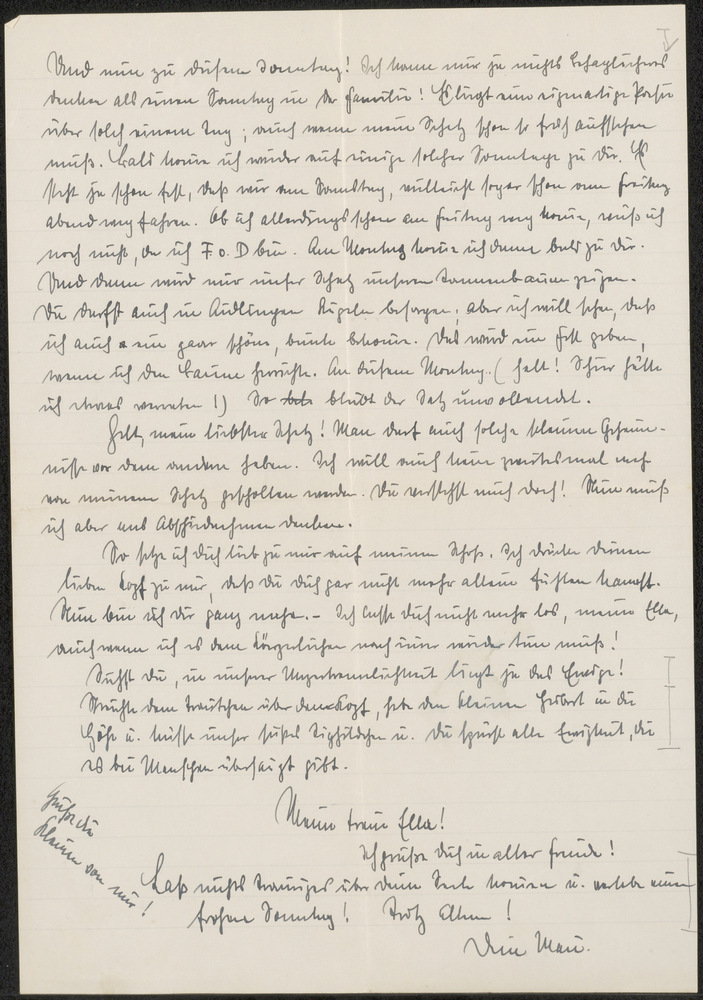 Und nun zu diesem Sonntag! Ich kann mir ja nichts Behaglicheres
denken als einen Sonntag in der Familie! Es liegt eine eigenartige Poesie
über solch einem Tag; auch wenn mein Schatz schon so früh aufstehen
muß. Bald komme ich wieder auf einige solcher Sonntage zu Dir. Es
steht ja schon fest, daß wir am Samstag, vielleicht sogar schon am Freitag
abend wegfahren. Ob ich allerdings schon am Freitag weg komme, weiß ich
noch nicht, da ich F. o. D bin. Am Montag komme ich dann bald zu Dir.
Und dann wird mir unser Schatz unseren Tannenbaum zeigen.
Du darfst auch in Aidlingen Kugeln besorgen; aber ich will sehen, daß
ich auch ein paar schöne, bunte bekomme. Das wird ein Fest geben,
wenn ich den Baum herrichte. An diesem Montag.. ( halt! Schier hätte
ich etwas verraten!) So bleibt der Satz unvollendet.
Gelt, mein liebster Schatz! Man darf auch solche kleinen Geheim-
nisse vor dem andern haben. Ich will auch kein zweitesmal mehr
von meinem Schatz gescholten werden. Du verstehst mich doch! Nun muß
ich aber ans Abschiednehmen denken.
So setze ich Dich lieb zu mir auf meinen Schoß. Ich drücke Deinen
lieben Kopf zu mir, daß Du Dich gar nicht mehr allein fühlen kannst.
Nun bin ich Dir ganz nahe. - Ich lasse Dich nicht mehr los, meine Ella,
auch wenn ich es dem Körperlichen nach immer wieder tun muß!
Siehst Du, in unserer Unzertrennlichkeit liegt ja das Ewige!
Streichle dem Trautchen über den Kopf, hebe den kleinen Hubert in die
Höhe u. küsse unser süßes u. Du spürst alle Ewigkeit, die
es bei Menschen überhaupt gibt.
Meine treue Ella!
Ich grüße Dich in aller Freude!
Laß nichts Trauriges über Deine Seele kommen u. verlebe einen
frohen Sonntag! Trotz Allem!
Dein Mann.
Grüße die
Kleinen von mir!